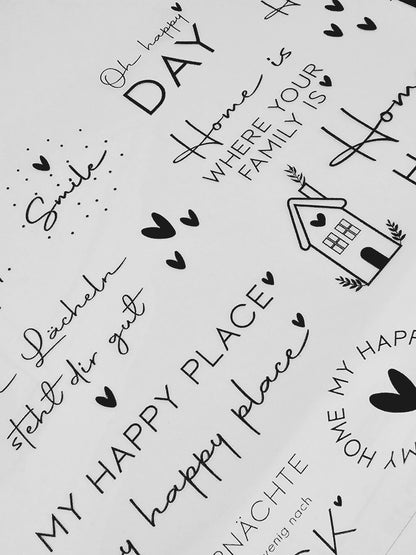 Oh happy
DAY
Home is
WHERE YOUR
FAMILY IS
Smile
Lächeln
steht dir gut
MY HAPPY PLACE
happy place
MY HOME MY HAPP
MY
RNÄCHTE
enig nach